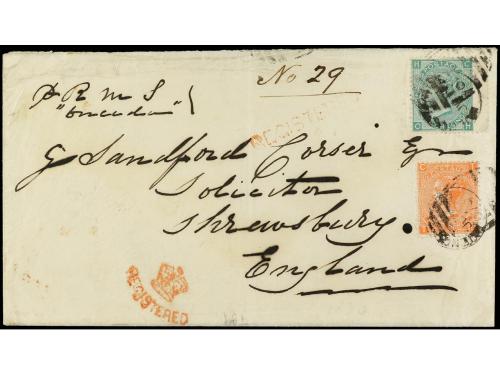 No 29
p R M S
"Oneida"
REGISTERED
G. Sandford Corser Eqr
Solicitor
Shrewsbury.
England
REGISTERED
POSTAGE